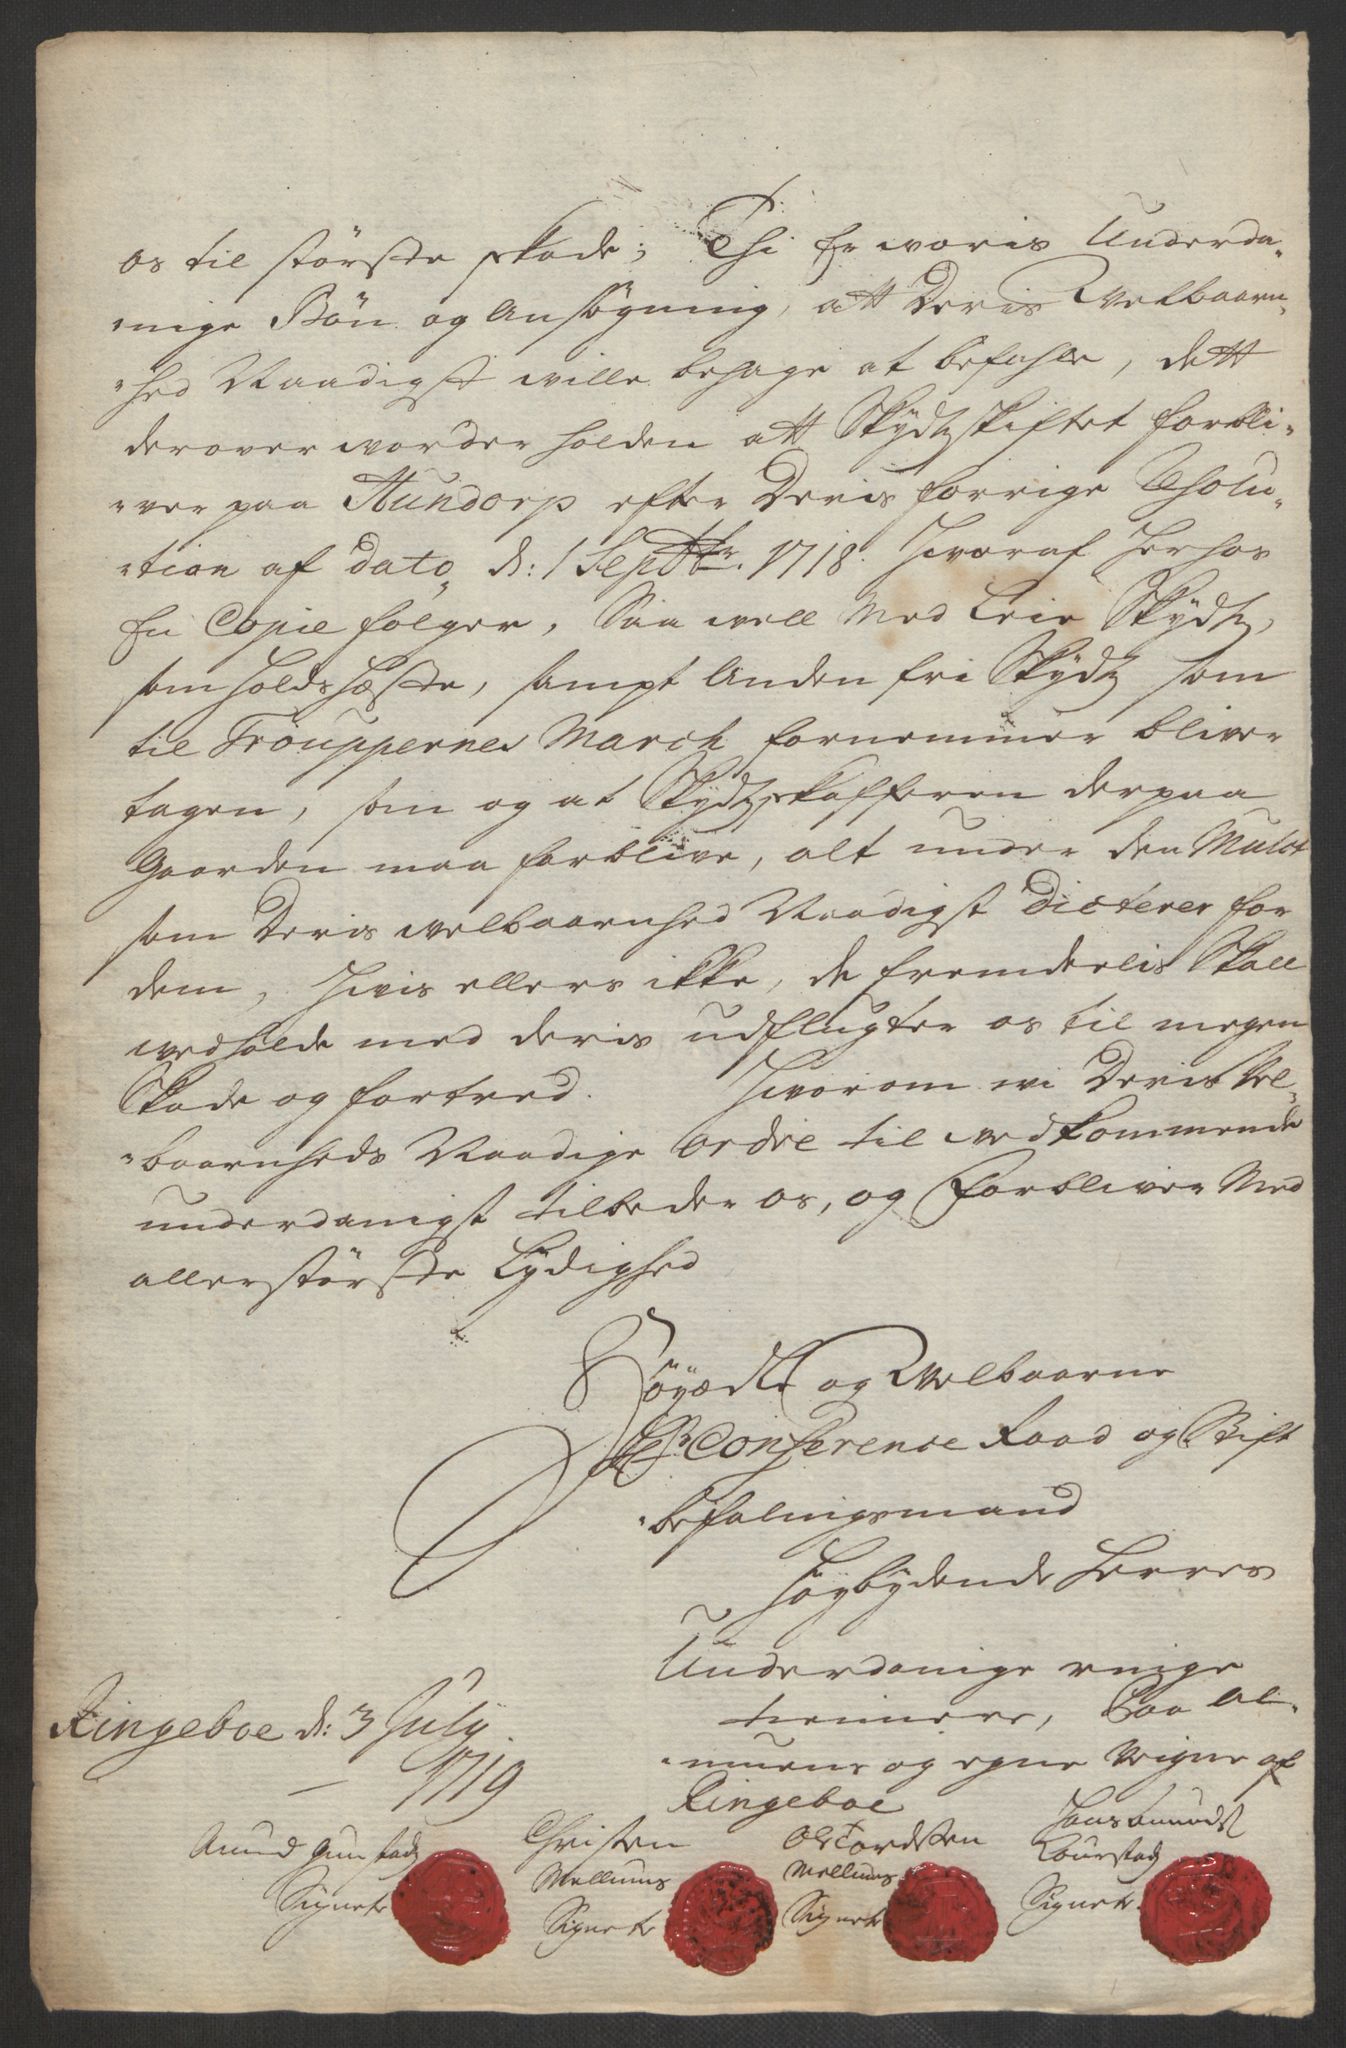 os til störste skade; Thi er woris Underda-
-nige Bön og Ansögning, att Deris Welbaarn-
-hed Naadigst wille behage at befahle, dett
derover worder holden att Skydtzskiftet forbli-
-ver paa Hundorp efter Deris forrige Resolu-
-tion af dato d: 1 Septbr. 1718. Hvoraf herhos
En Copie fölger, Saa well Med Leie Skydtz,
som holdshæste, sampt Anden fri Skydtz som
til Trouppernes March fornemmer bliver
tagen, som og at Skydtzskafferen derpaa
Gaarden maa forblive, alt under den Mulct
som Deris welbaarnhed Naadigst Dicterer for
dem, Hvis ellers ikke, de fremdelis Skall
vedholde med deris udflugter os til megen
Skade og fortred. Hvorom wi Deris Vel-
-baarnheds Naadige Ordre til vedkommende
underdanigst tilbeder os, og forbliver Med
allerstörste Lydighed
Höyædle og Welbaarne
Hr Conference Raad og Stift
-befalingsmand
Höybydende Herres
Underdanige ringe
tienere, Paa Al-
-muens og egne Veigne af
Ringeboe
Ringeboe d: 3 July
1719
Amund Gunstadz
Signete
Christen
Mellums
Signete
Ole Tordsten
Mellums
Signete
Hans Amundsl
Lourstadz
Signete.